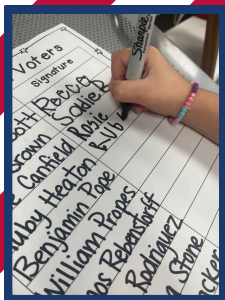 Sharpie
Voters
Signature
ott Rocco
rown Sadie
Canfield Rosie
uby Heaton Bulb
Benjamin Pope
William Propes
os Rebenstorff
Rodriguez
n Stone
cker